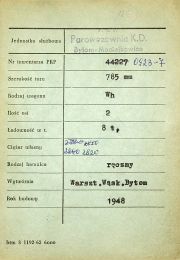 Jednostka służbowa Parowozownia K.D.
Bytom-Maciejkowice
Nr inwentarza PKP 44229 0423-7
Szerokość toru 785 mm
Rodzaj wagonu Wh
Ilość osi 2
Ładowność w t. 8 t,
Ciężar własny
2840 2820
Rodzaj hamulca ręczny
Wytwórnia Warszt.Wąsk.Bytom
Rok budowy 1948